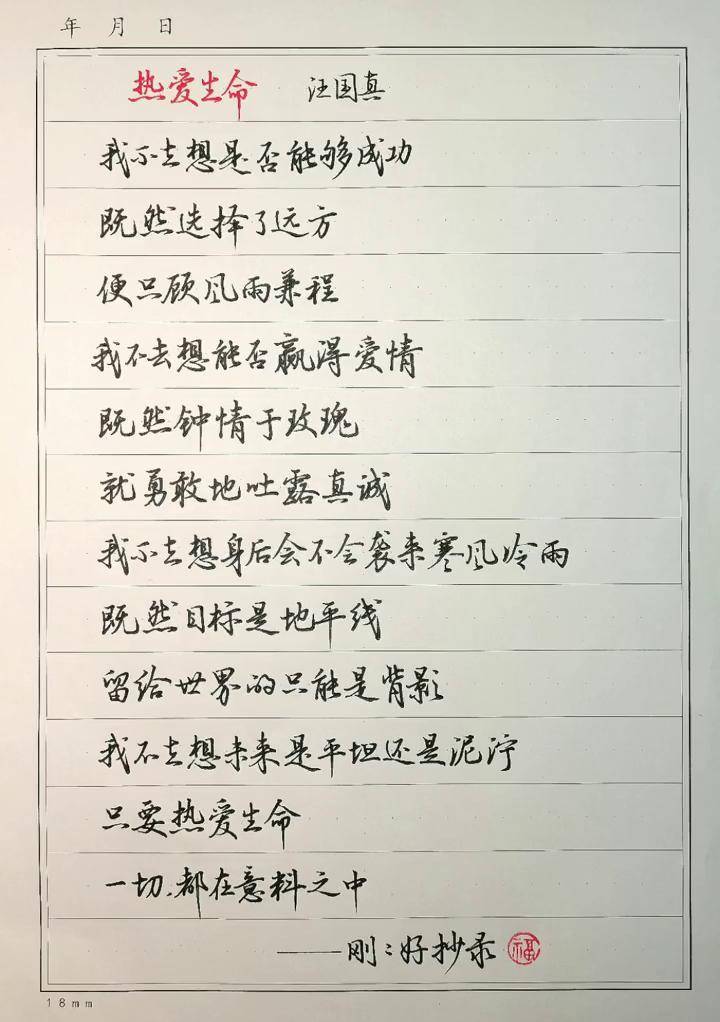 年 月 日
热爱生命 汪国真
我不去想是否能够成功
既然选择了远方
便只顾风雨兼程
我不去想能否赢得爱情
既然钟情于玫瑰
就勇敢地吐露真诚
我不去想身后会不会袭来寒风冷雨
既然目标是地平线
留给世界的只能是背影
我不去想未来是平坦还是泥泞
只要热爱生命
一切,都在意料之中
——刚:好抄录 福
18mm